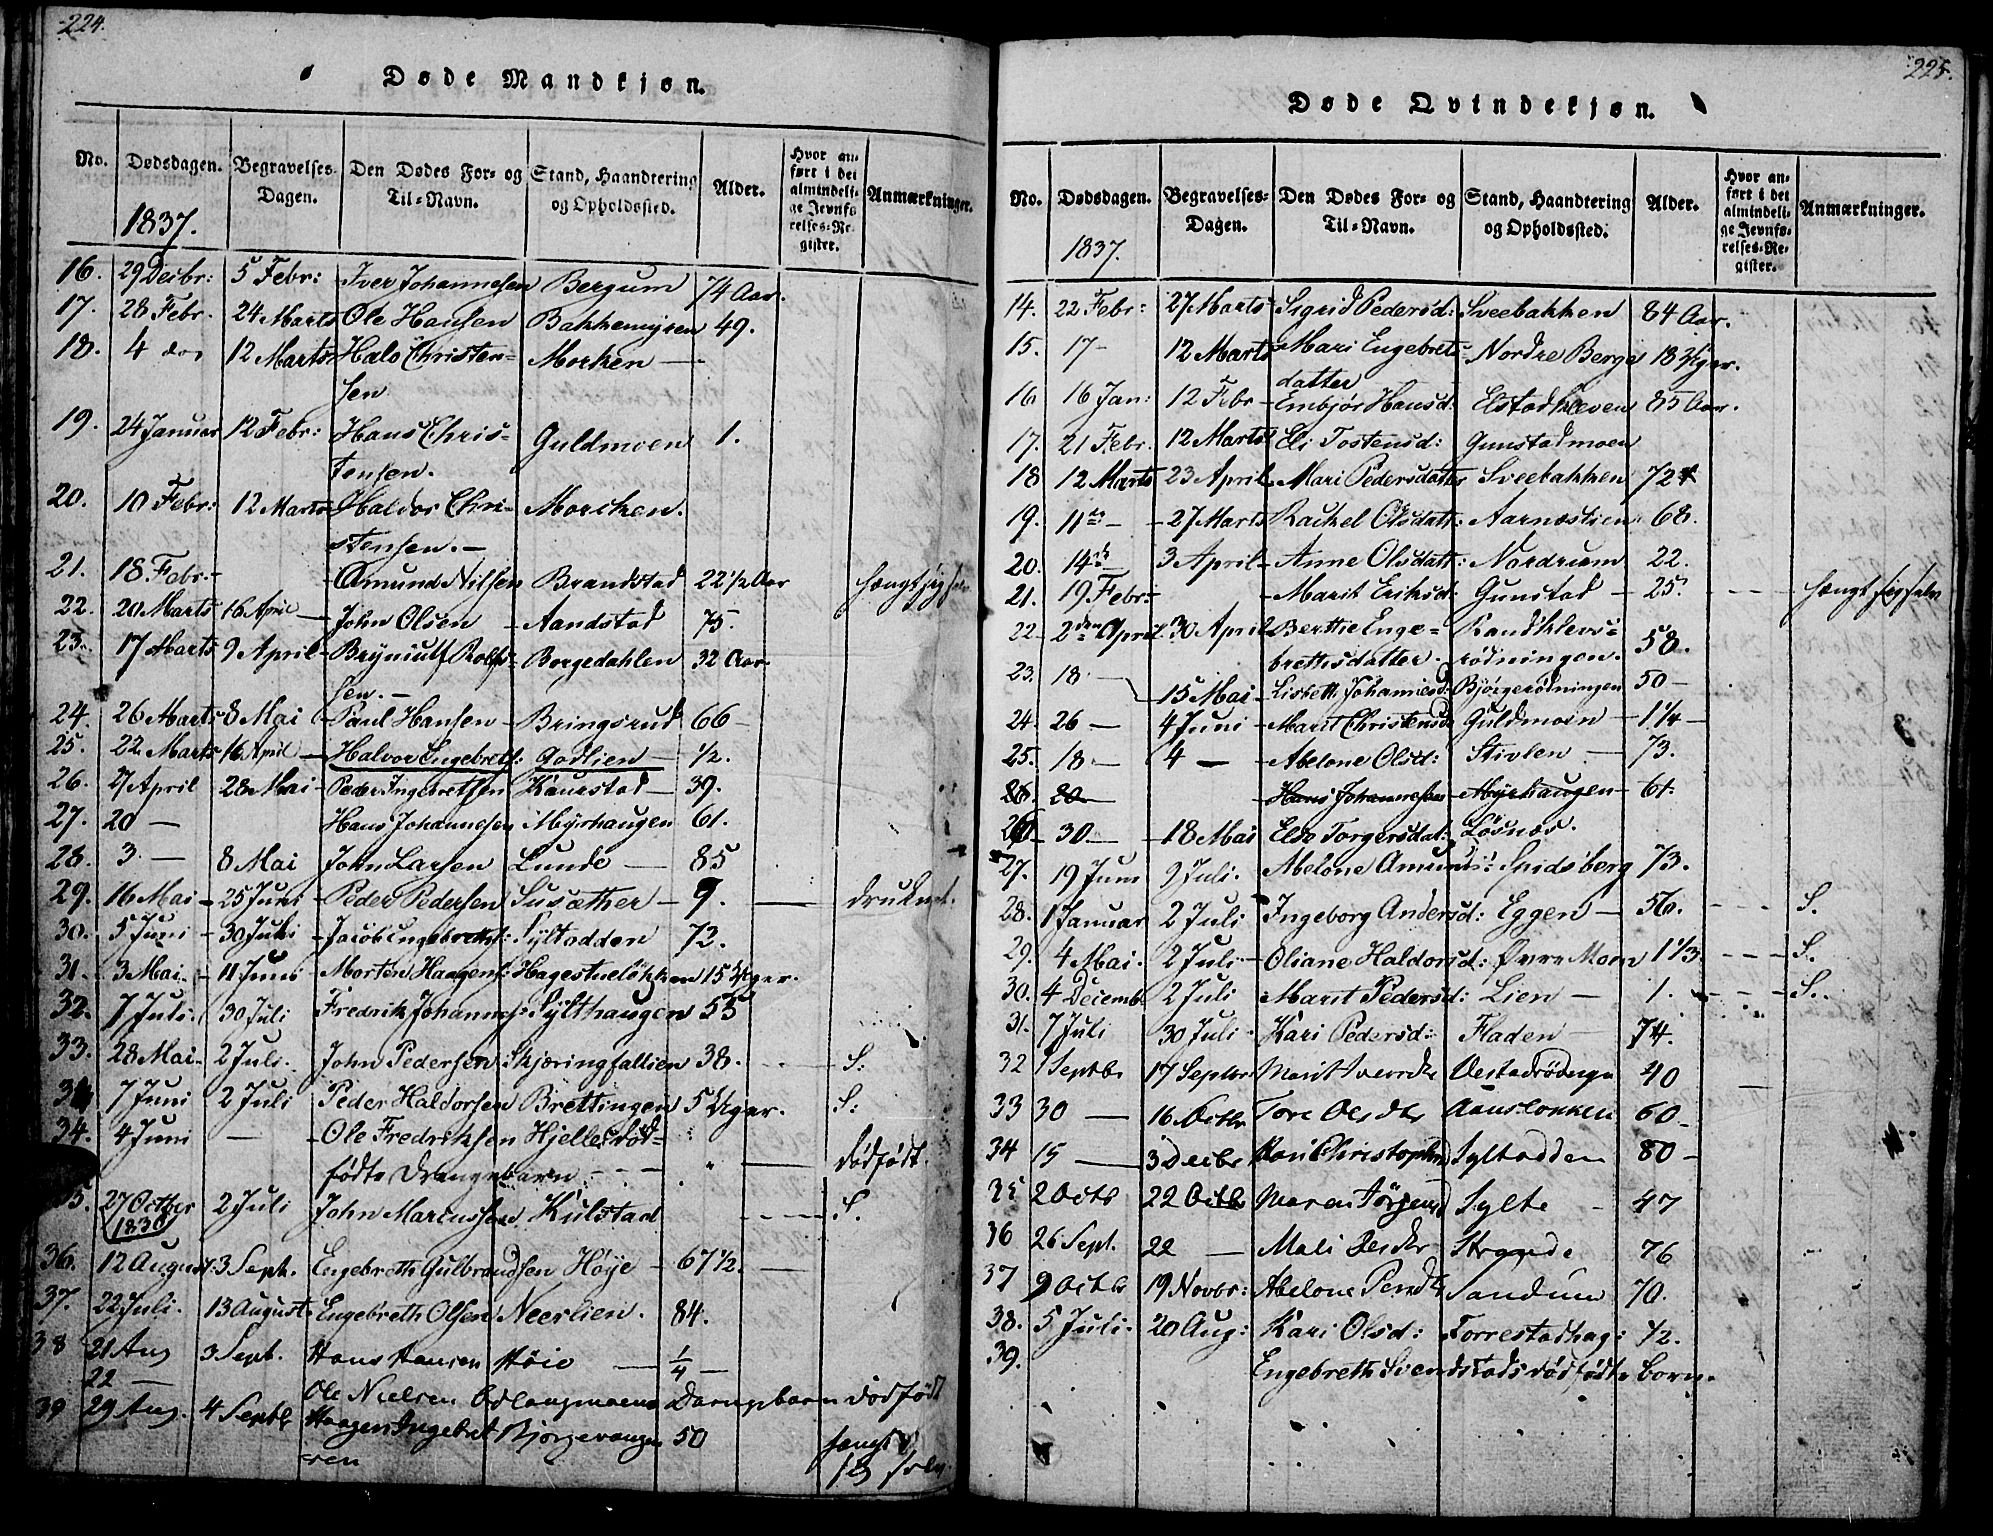 224.
Døde Mandkjøn.
No. Dødsdagen. Begravelses-Dagen. Den Dødes For- og Til-Navn. Stand, Haandtering og Opholdssted. Alder. Hvor anført i det almindelige Jevnførelses-Register. Anmærkninger.
1837.
16. 29 Decbr: 5 Febr: Iver Johannesen Bergum 74 Aar.
17. 28 Febr. 24 Marts Ole Hansen Bakkemyren 49.
18. 4 do 12 Marts Halv Christen=
sen Morken —
19. 24 Januar 12 Febr: Hans Chris=
tensen. Guldmoen 1.
20. 10 Febr: 12 Marts Haldor Chri=
stensen. — Morcken.
21. 18 Febr. - Amund Nilsen Brandstad 22 1/2 Aar hængt sig selv
22. 20 Marts 16 April — John Olsen - Aandstad 75.
23. 17 Marts 9 April - Bryniulf Rolf=
sen. — Borgedahlen 32 Aar.
24. 26 Marts 8 Mai - Paul Hansen - Bringsrud 66 -
25. 22 Marts 16 April — Halvor Engebrets: Godlien — 1/2.
26. 7 April 28 Mai - Peder Ingebretsen Kaurstad — 39.
27. 20 — Hans Johannesen Myrhaugen 61.
28. 3. — 8 Mai John Larsen Lunde — 85
29. 16 Mai - 25 Juni - Peder Pedersen Susæther - 9. — druknet.
30. 5 Juni - 30 Juli - Jacob Engebretts: Syltodden 72.
31. 3 Mai. - 11 Juni - Morten Haagens: Hagestueløkken 15 Uger.
32. 7 Juli. 30 Juli Fredrik Johannes: Sylthaugen 53
33. 28 Mai - 2 Juli. John Pedersen Skjæringfallien 38. S:
34 7 Juni 2 Juli Peder Haldorsen Brettingen 5 Uger. S:
34. 4 Juni — - Ole Fredriksen Hjelles død=
fødte Drengebarn - - - " — dødfødt.
35. 27 Octber
1836 2 Juli John Marcussen Kulstad S.
36. 12 August: 3 Sept. Engebreth Gulbrandsen Høye - 67 1/2. —
37. 22 Juli. 13 August. Engebreth Olsen Neerlien. 84.
38 21 Aug 3 Sept. Hans Hansen Høie — 1/4 —
22 — Ole Nielsen dødfødt
39 29 Aug. 4 Septbr Haagen Ingebret
sen Bjørgevangen 50
225.
Døde Qvindekjøn.
No. Dødsdagen. Begravelses-Dagen. Den Dødes For- og Til-Navn. Stand, Haandtering og Opholdssted. Alder. Hvor anført i det almindelige Jevnførelses-Register. Anmærkninger.
1837.
14. 22 Febr: 27 Marts Sigrid Pedersd: Sveebakken 84 Aar.
15. 17 - 12 Marts Mari Engebrets
datter Nordre Berge 18 Uger.
16 16 Jan: 12 Febr - Embjør Hansd: Elstadkleven 85 Aar.
17. 21 Febr. 12 Marts Eli Tostensd: Gunstadmoen
18 12 Marts 23 April. Mari Pedersdatter Sveebakken 72
19. 11te - - 27 Marts Rachel Olsdatt: Aarnæstien 68.
20. 14de 3 April - Anne Olsdatt: Nordrum 22.
21. 19 Febr: - - Marit Eriksd: Gunstad - 25. - - - - hængt sig selv
22. 2den April. 30 April Berthe Enge=
brettsdatter. Randklevs=
rødningen. 58.
23. 18 15 Mai - Lisbett Johannesd: Bjørgerødningen 50 —
24. 26 — 4 Juni - Marit Christensd: Guldmoen - 1 1/4 —
25. 18 — 4 — - Abelone Olsd: Stivlen — 73.
26. 20 - Hans Johannesen Myrhaugen - 61.
26 30 — - 18 Mai Eldo Torgersdat: Løsnæs.
27. 19 Juni 9 Juli. Abelone Amunds: Spidsberg 73.
28. 1 Januar 2 Juli Ingeborg Andersd: Eggen — 56. - - - S.
29. 4 Mai. 2 Juli - Oliane Haldorsd: Øvre Moen 1 1/3. - - - S.
30. 4 Decemb. 2 Juli - Marit Pedersd: Lien — 1. - - - S.
31. 7 Juli 30 Juli - Kari Pedersd: Fladen — 74.
32 1 Septbr 17 Septbr Marit 40
33 30 — 16 Octbr Tore 60 -
34 15 — 3 Decbr Kari Christophd Syltodden 80 -
35 2 Octb 22 Octbr Maren Jørgensd Sylte - 47
36 26 Sept. 22 — Mali 76
37 9 Octbr 19 Novbr: Abelone Sandum 70.
38. 5 Juli. 20 Aug: Kari Olsd: Forrestadhag: 72.
39. Engebreth Svendstads dødfødte barn.